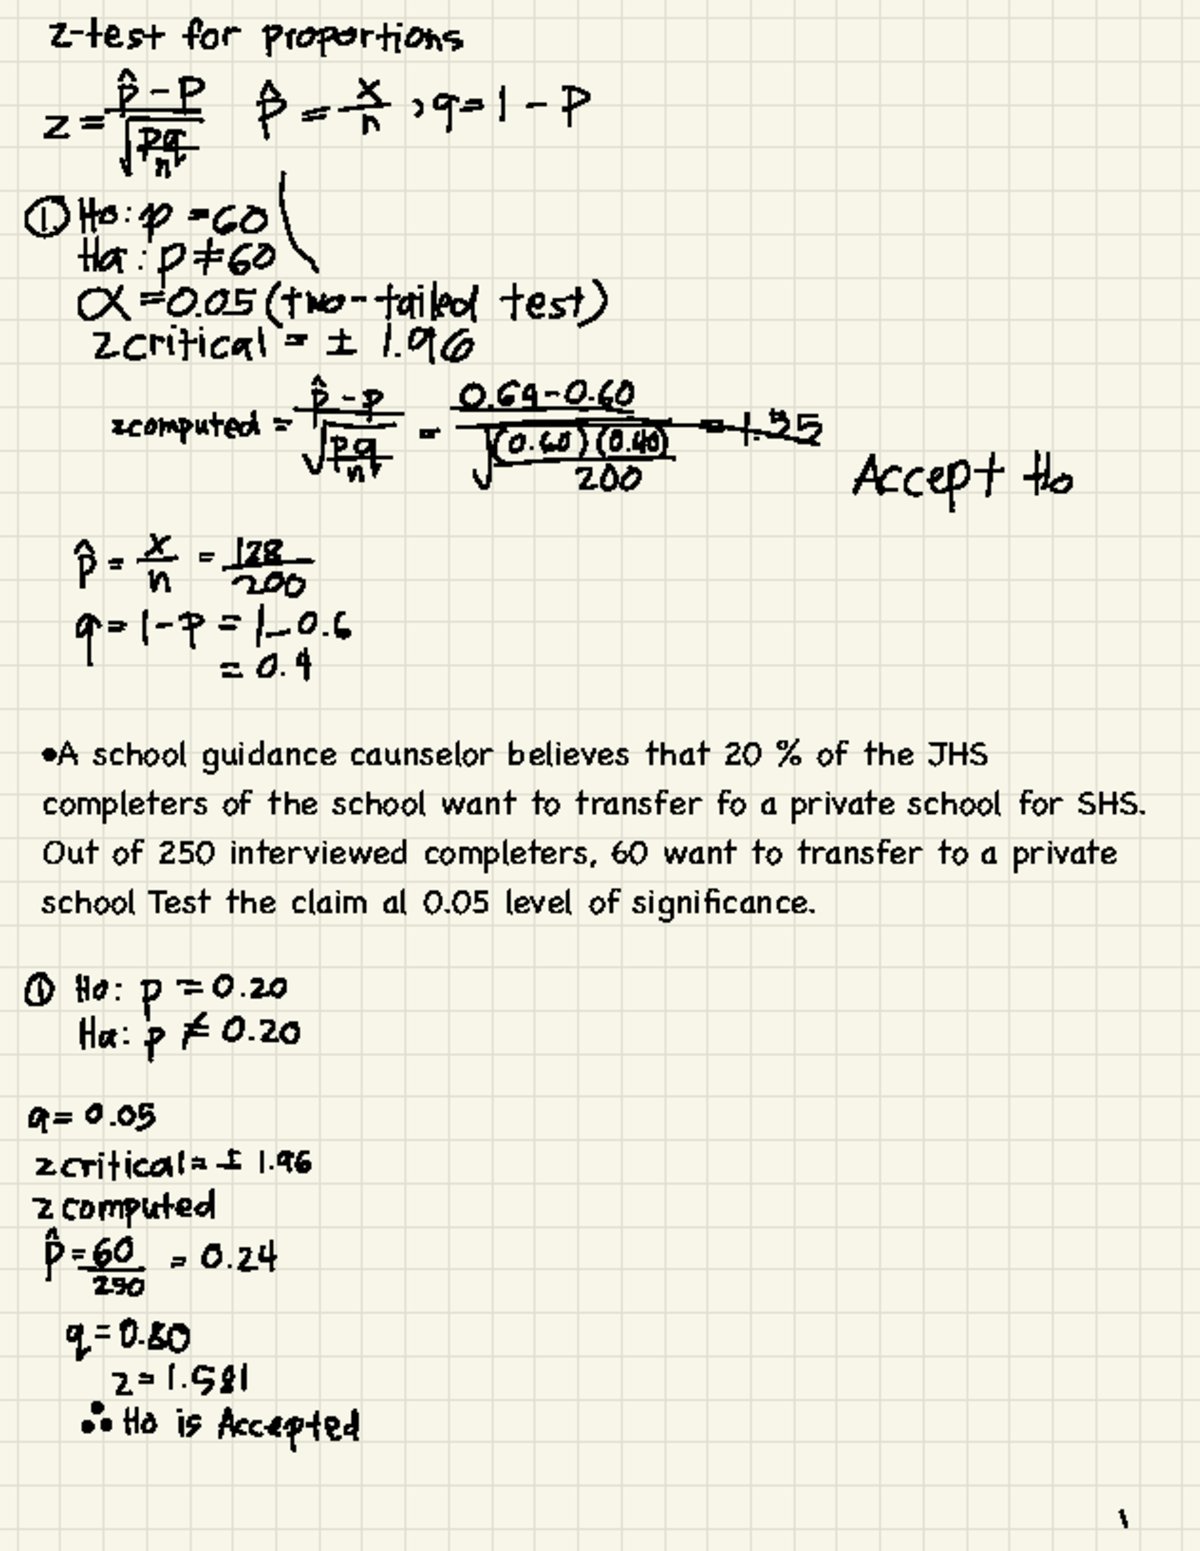 z-test for proportions
z = p̂ - p / √(pq/n)   p̂ = x/n ; q = 1 - P
① Ho: p = 60
Ha: p ≠ 60
α = 0.05 (two-tailed test)
z critical = ± 1.96
z computed = p̂ - p / √(pq/n) = 0.64 - 0.60 / √((0.60)(0.40)/200) =   Accept Ho
p̂ = x/n = 128/200
q = 1 - p = 1 - 0.6
= 0.4
•A school guidance caunselor believes that 20 % of the JHS
completers of the school want to transfer fo a private school for SHS.
Out of 250 interviewed completers, 60 want to transfer to a private
school Test the claim al 0.05 level of significance.
① Ho: p = 0.20
Ha: p ≠ 0.20
a = 0.05
z critical = ± 1.96
z computed
p̂ = 60/250 = 0.24
q = 0.80
z = 1.581
∴ Ho is Accepted
1